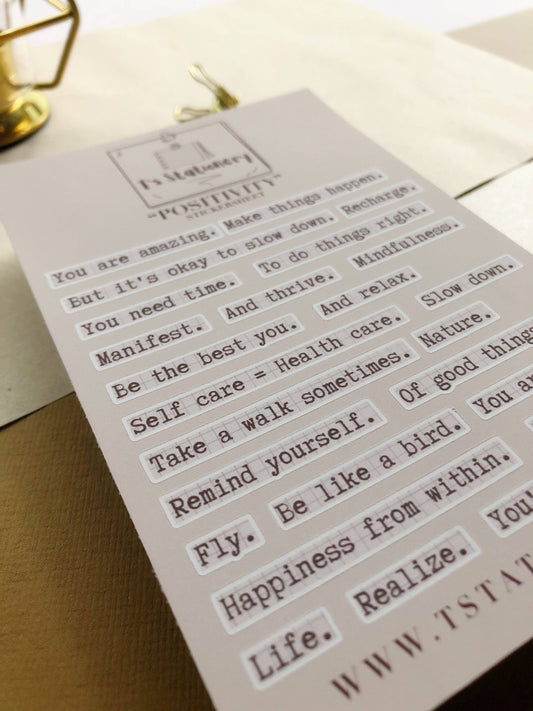 T's Stationery
"POSITIVITY"
STICKERSHEET
You are amazing. Make things happen.
But it's okay to slow down. Recharge.
You need time. To do things right.
Manifest. And thrive. Mindfulness.
Be the best you. And relax.
Self care = Health care. Slow down.
Take a walk sometimes. Nature.
Remind yourself. Of good things
Fly. Be like a bird. You
Happiness from within.
Life. Realize. You'
WWW.TSTAT